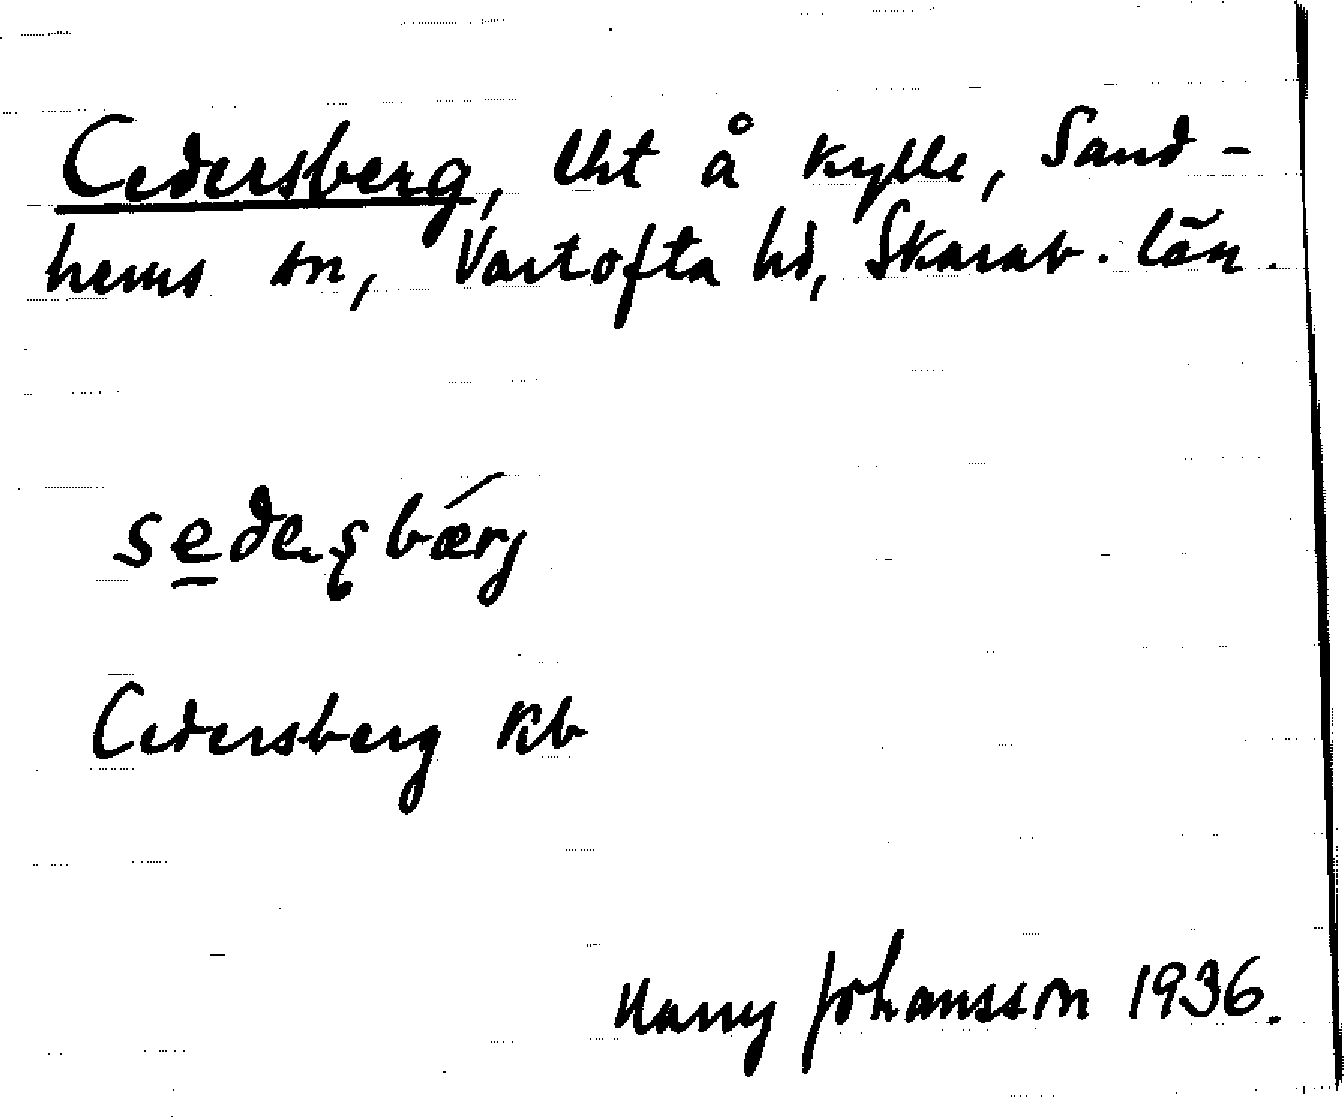 Cedersberg, lht å Kylle, Sand-
hems sn, Vartofta hd, Skarab. län.
sedeşbærj
Cedersberg Kb
Harry Johansson 1936.